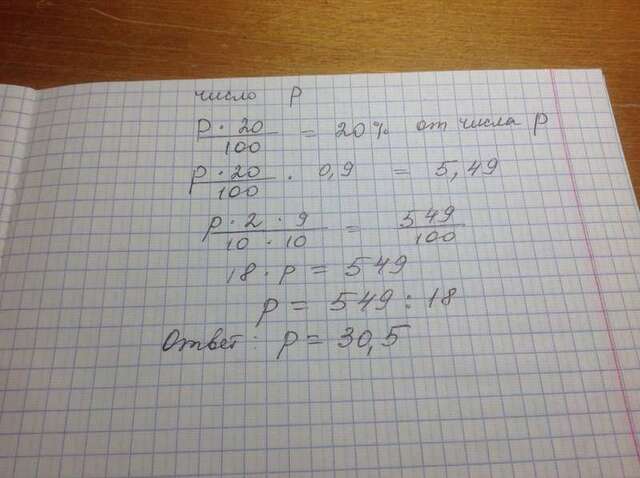 число р
р · 20 / 100 = 20% от числа р
р · 20 / 100 · 0,9 = 5,49
р · 2 · 9 / 10 · 10 = 549 / 100
18 · р = 549
р = 549 : 18
Ответ: р = 30,5